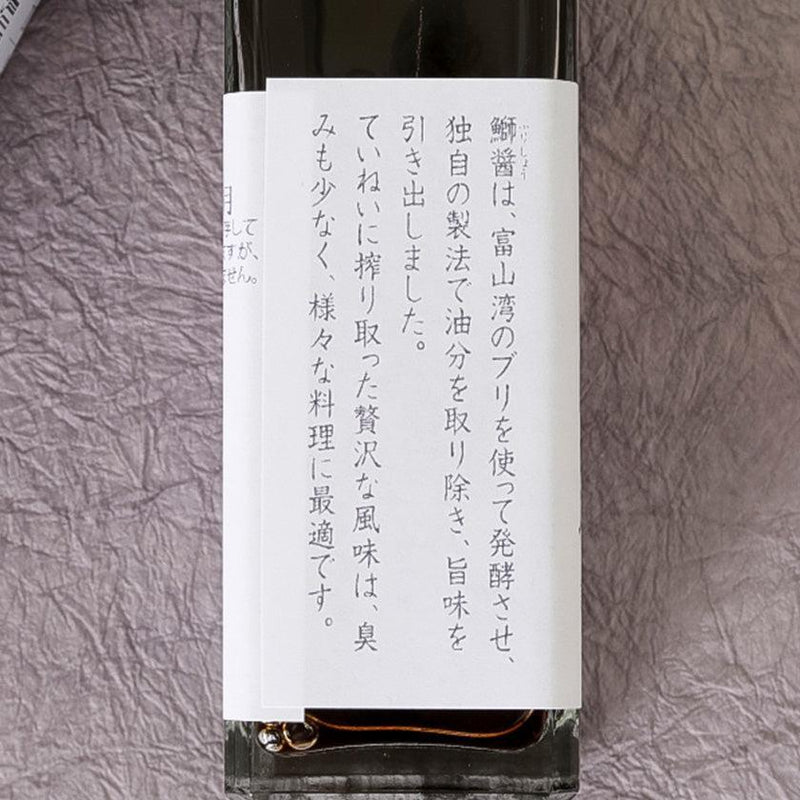 鰤醤は、富山湾のブリを使って発酵させ、
独自の製法で油分を取り除き、旨味を
引き出しました。
ていねいに搾り取った贅沢な風味は、臭
みも少なく、様々な料理に最適です。
して
すが、
せん。